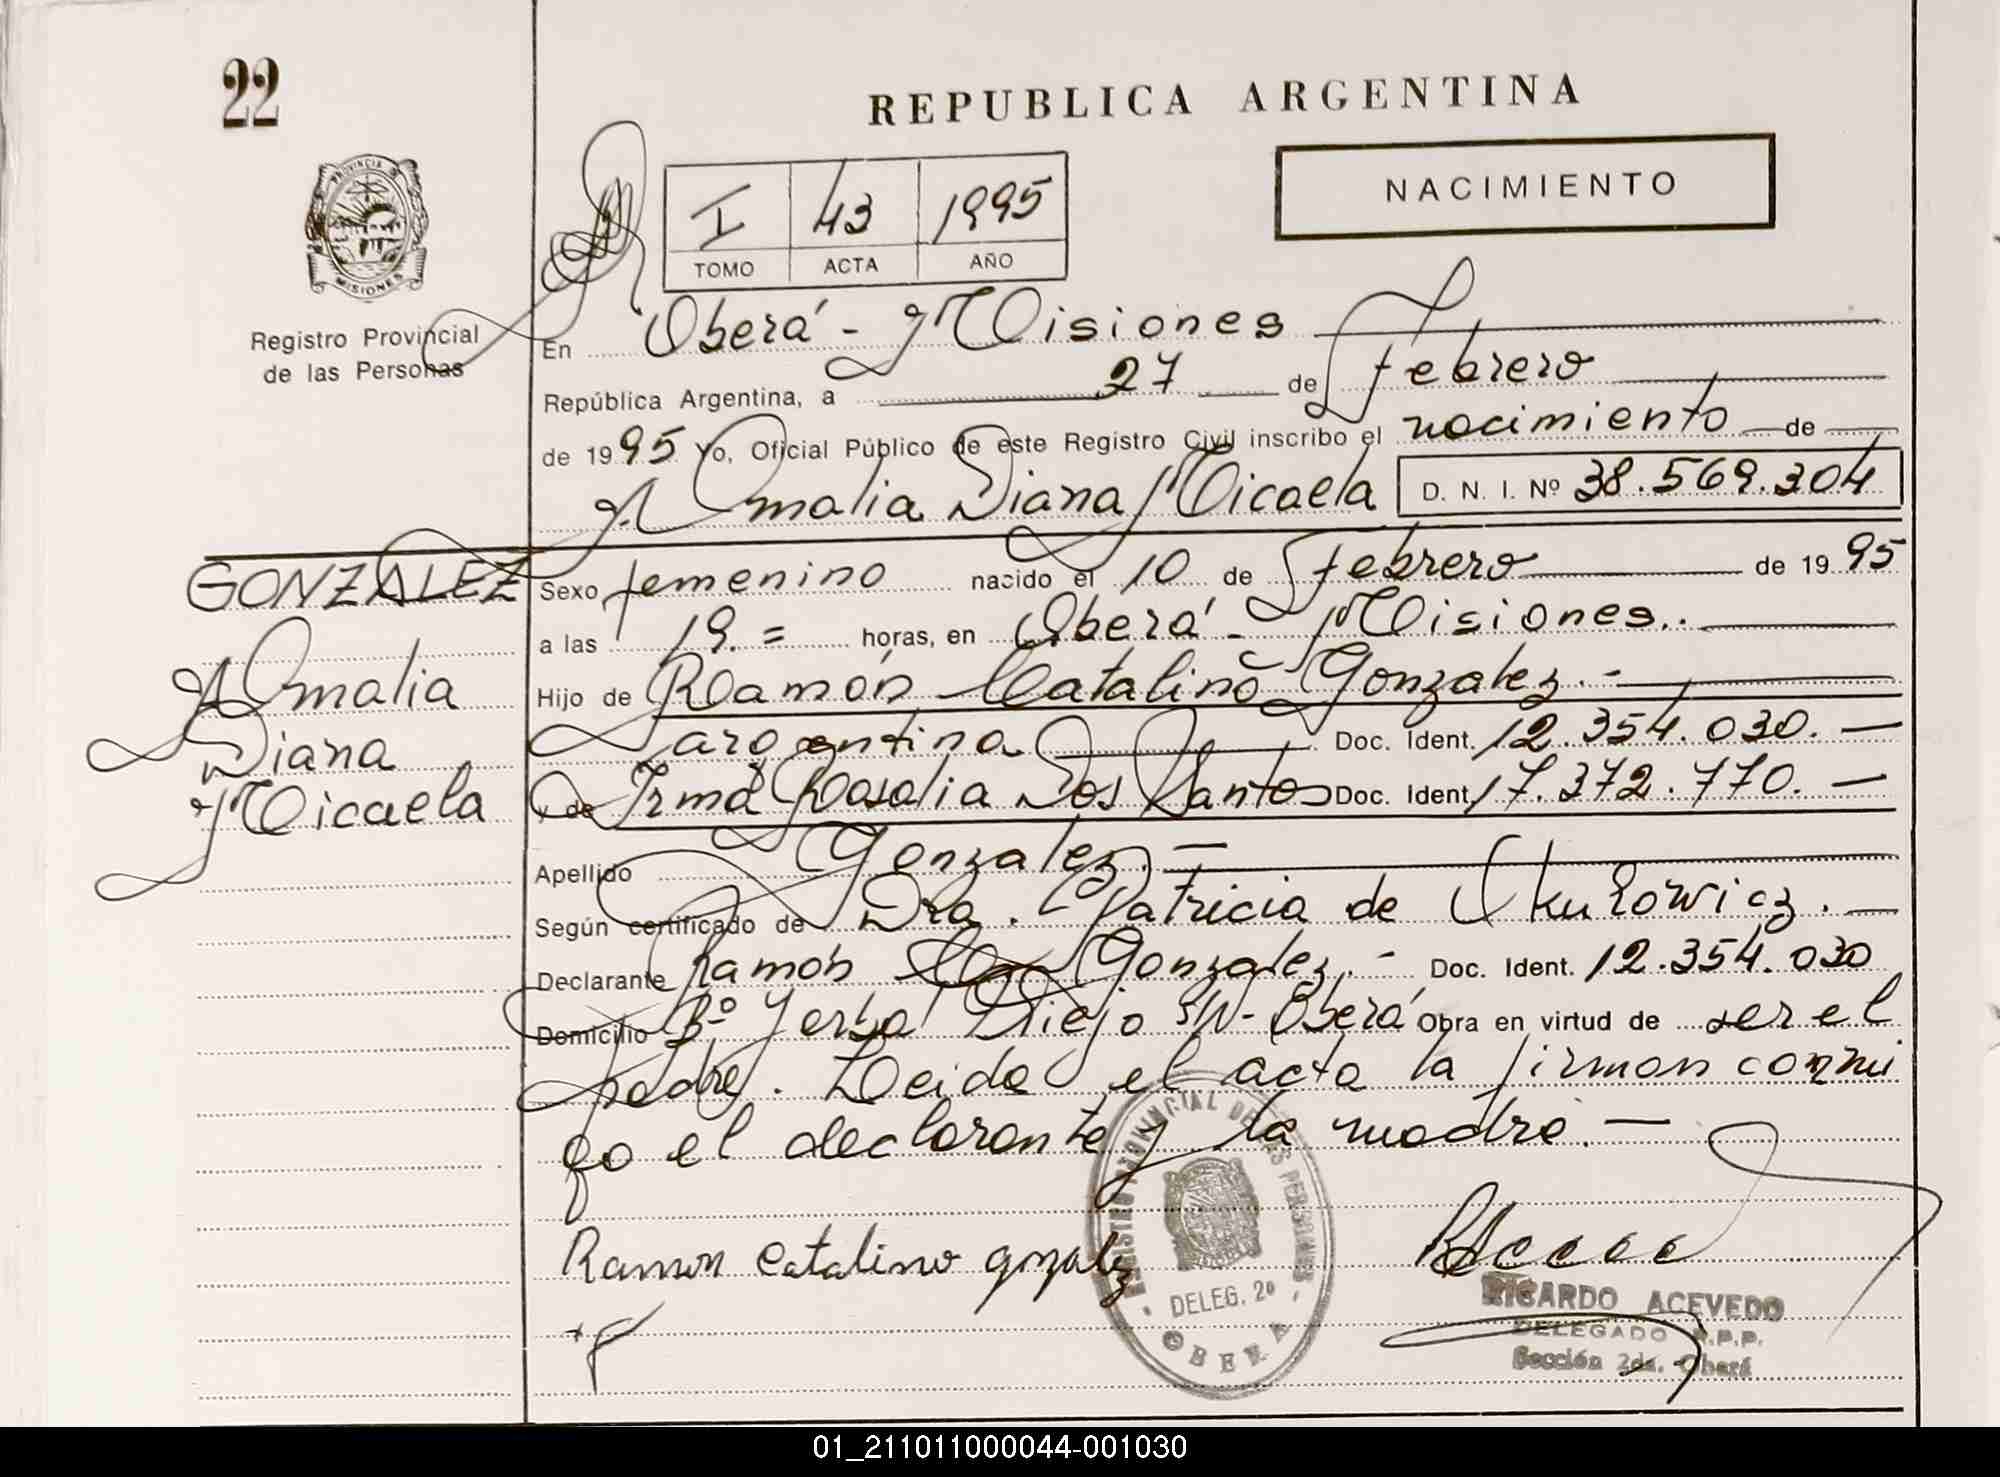 22
REPUBLICA ARGENTINA
NACIMIENTO
I 43 1995
TOMO ACTA AÑO
PROVINCIA DE
MISIONES
Registro Provincial
de las Personas
En Oberá - Misiones
República Argentina, a 27 de Febrero
de 1995 Yo, Oficial Público de este Registro Civil inscribo el nacimiento de
Amalia Diana Micaela D. N. I. Nº 38.569.304
GONZALEZ
Amalia
Diana
Micaela
Sexo femenino nacido el 10 de Febrero de 1995
a las 19.= horas, en Oberá - Misiones..
Hijo de Ramón Catalino Gonzalez.-
argentina Doc. Ident. 12.354.030.-
y de Irma Rosalia Dos Santos Doc. Ident. 17.372.770.-
Apellido Gonzalez.-
Según certificado de Dra. Patricia de Skulowicz.-
Declarante Ramón Gonzalez.- Doc. Ident. 12.354.030
Domicilio Bº Yerba Viejo S/N- Oberá Obra en virtud de ser el
padre. Leida el acta la firman conmi
go el declarante y la madre.-
Ramon Catalino gonzalez
REGISTRO PROVINCIAL DE LAS PERSONAS
DELEG. 2º
OBERA
RICARDO ACEVEDO
DELEGADO R.P.P.
Sección 2da. Oberá
01_211011000044-001030